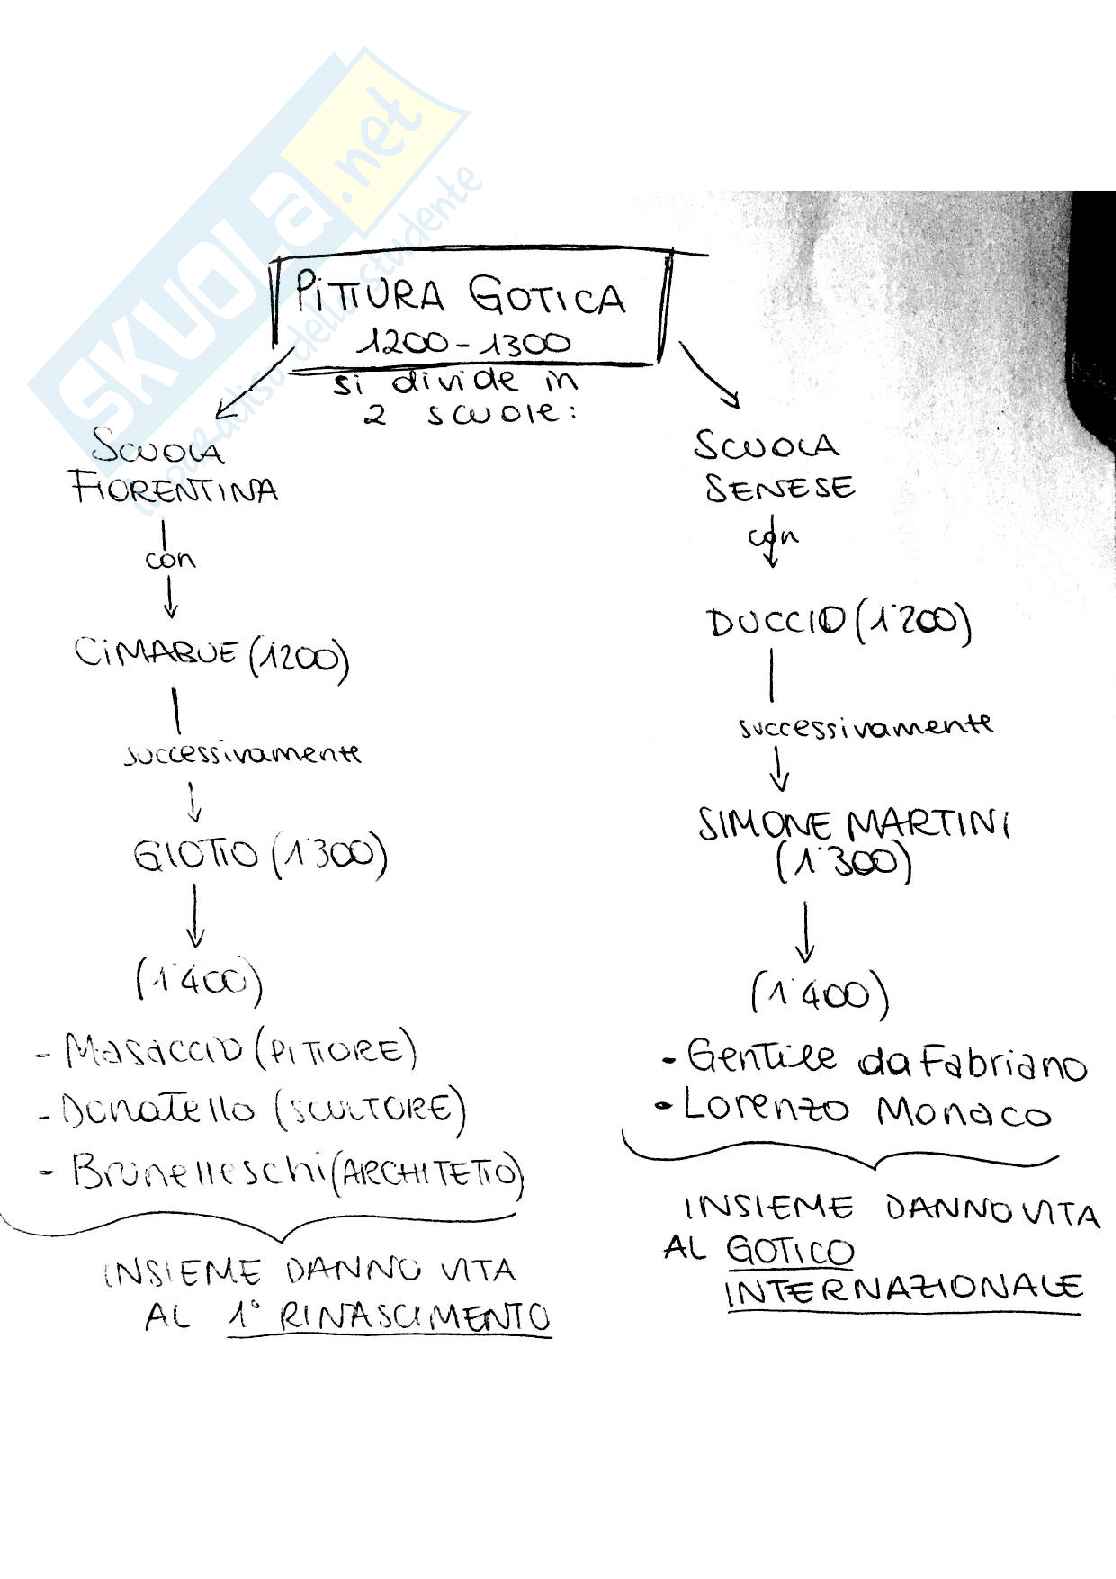 SKUOLA.net
PITTURA GOTICA
1200-1300
si divide in
2 scuole:
SCUOLA
FIORENTINA
con
CIMABUE (1200)
successivamente
GIOTTO (1'300)
(1'400)
- Masaccio (PITTORE)
- Donatello (SCULTORE)
- Brunelleschi (ARCHITETTO)
INSIEME DANNO VITA
AL 1° RINASCIMENTO
SCUOLA
SENESE
con
DUCCIO (1'200)
successivamente
SIMONE MARTINI
(1'300)
(1'400)
- Gentile da Fabriano
- Lorenzo Monaco
INSIEME DANNO VITA
AL GOTICO
INTERNAZIONALE